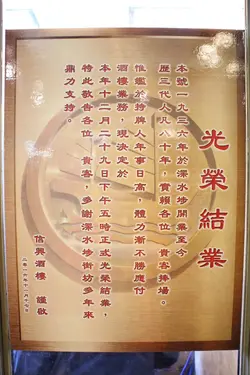 光榮結業
本號一九三六年於深水埗開業至今
歷三代人凡八十九年，實賴各位　貴客捧場。
惟鑑於持牌人年事日高，體力漸不勝應付
酒樓業務，現決定於
本年十二月二十九日下午五時正式光榮結業，
特此敬告各位　貴客，多謝深水埗街坊多年來
鼎力支持。
信興酒樓　謹啟